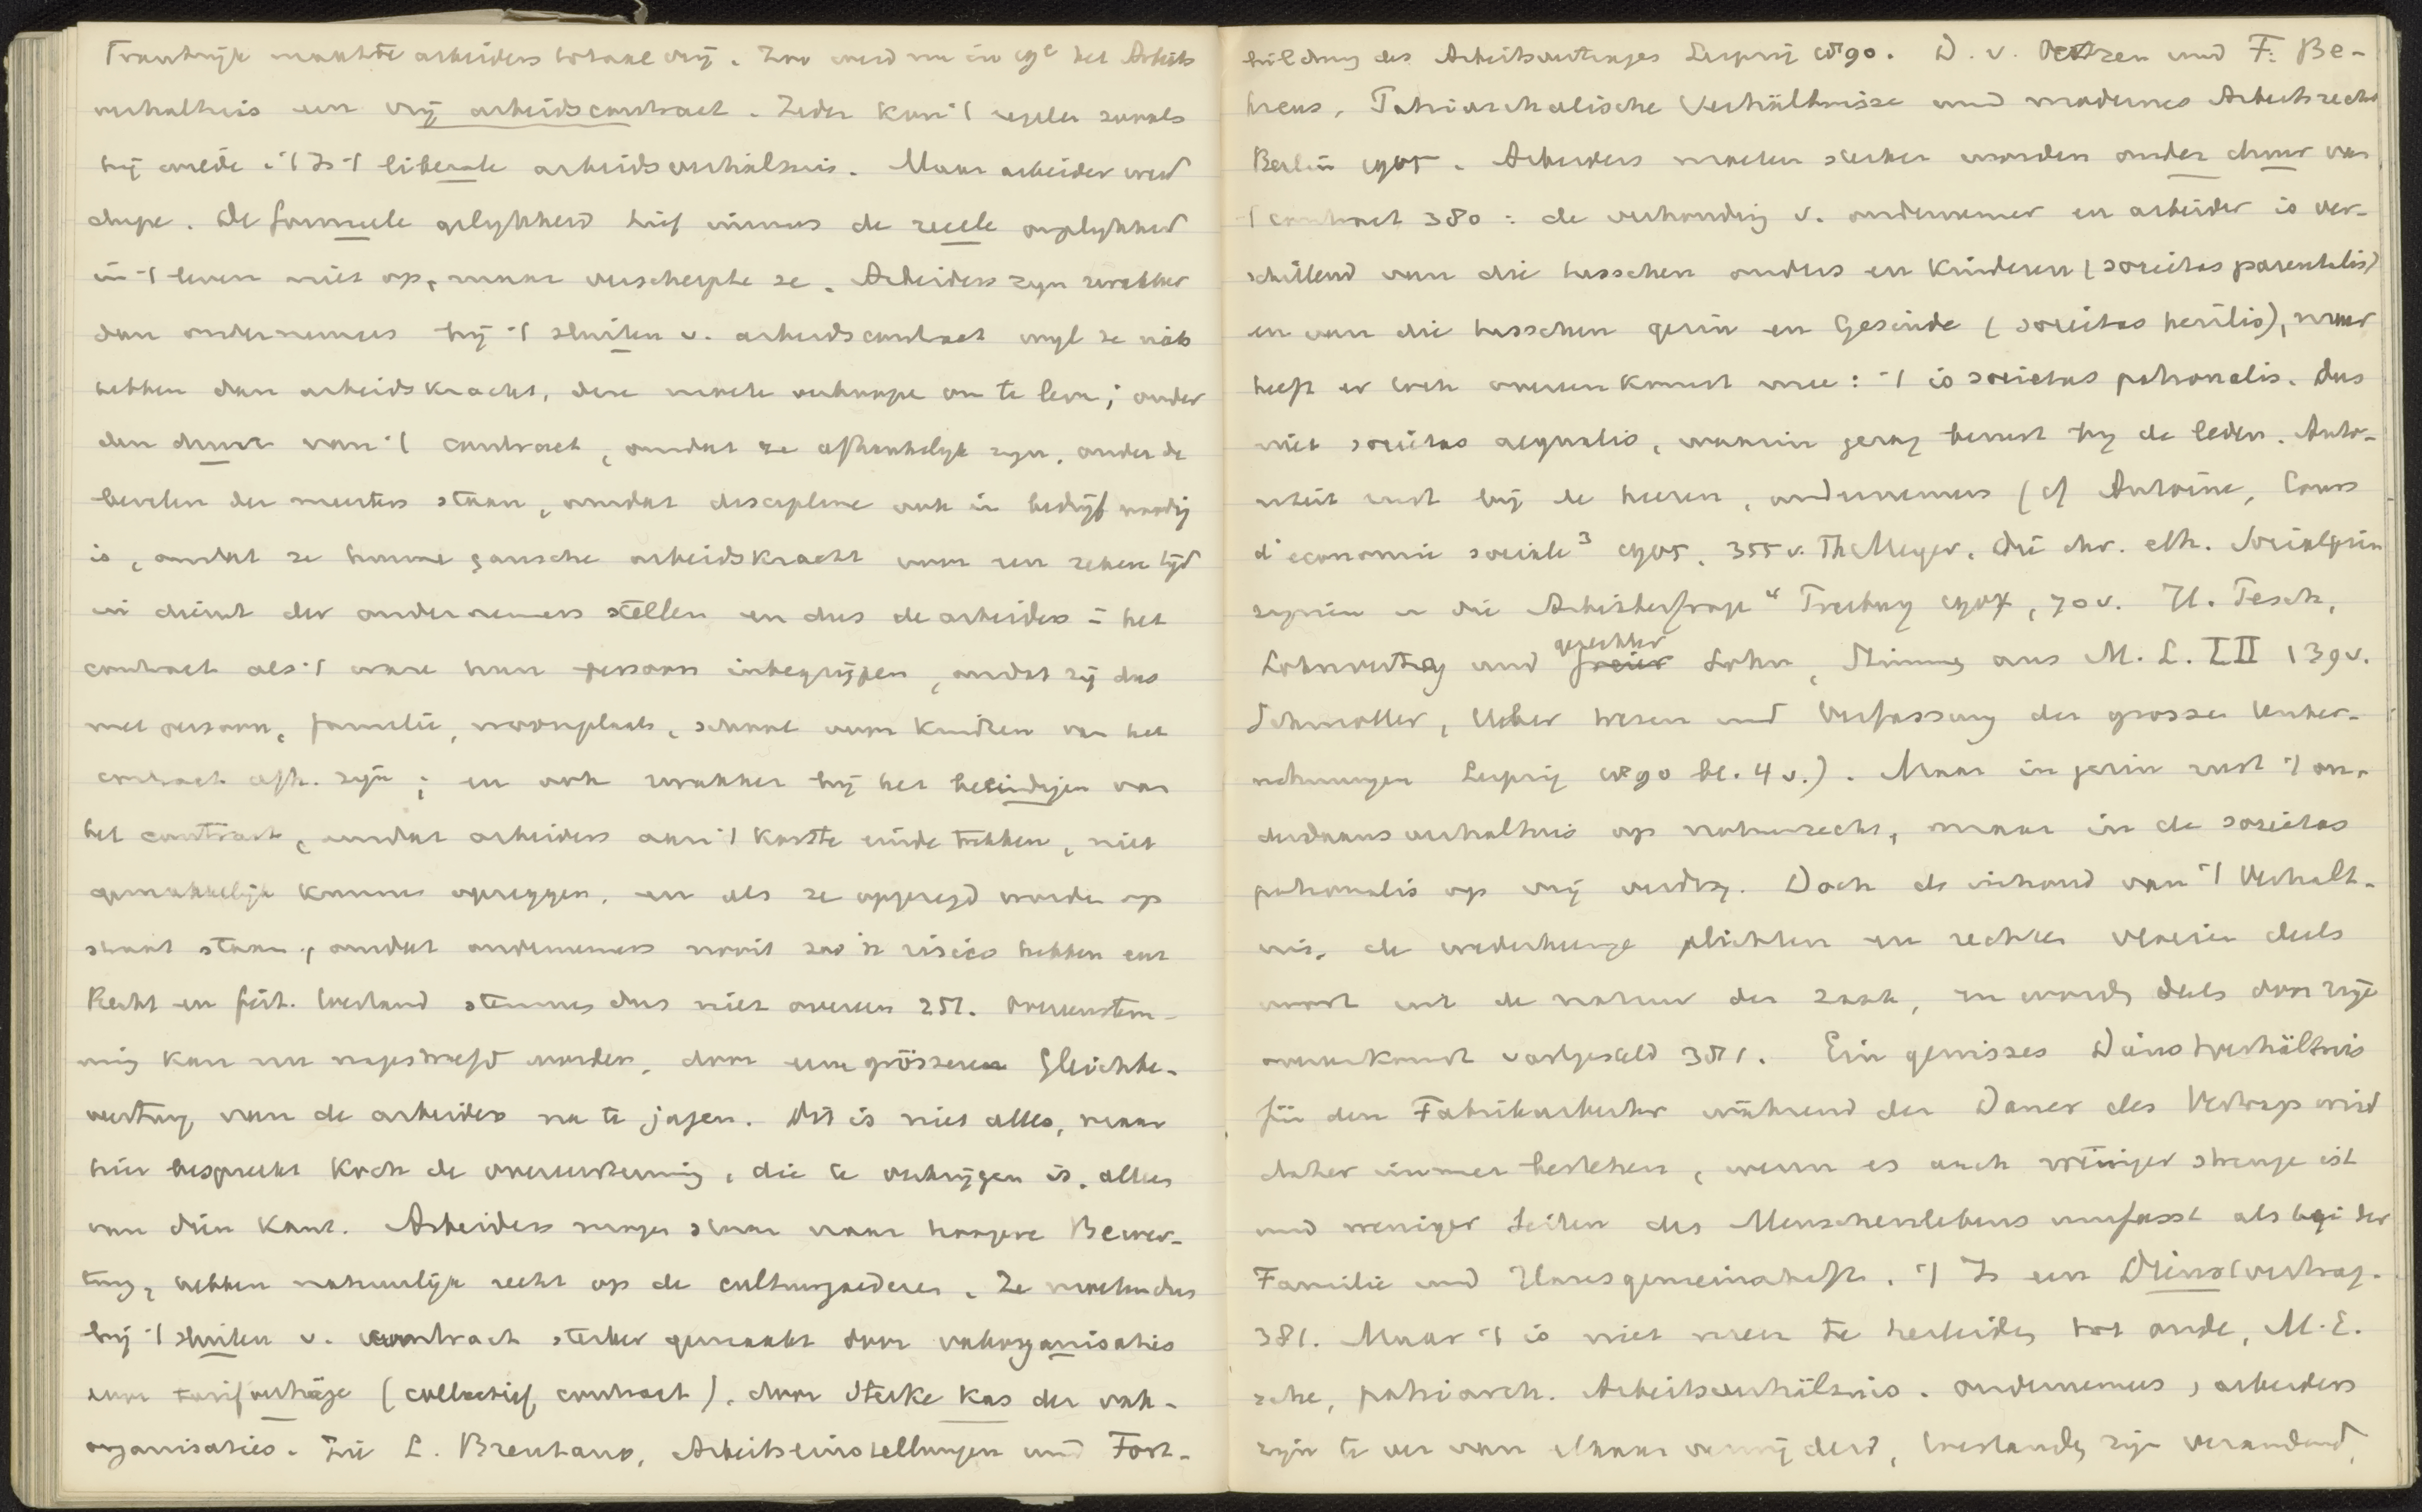 Frankrijk maakte arbeiders totaal vrij. Zoo werd nu in 19e het Arbeits
verhaltnis een vrij arbeidscontract. Ieder kon 't regelen zooals
hij wilde. 't Is 't liberale arbeidsverhältnis. Maar arbeider werd
dupe. De formeele gelijkheid hief immers de reeele ongelijkheid
in 't leven niet op, maar verscherpte ze. Arbeiders zijn zwakker
dan ondernemers bij 't sluiten v. arbeidscontract wijl ze niets
hebben dan arbeidskracht, deze moeten verkoopen om te leven; onder
den duur van 't contract, omdat ze afhankelijk zijn, onder de
bevelen der meesters staan, omdat discipline ook in bedrijf noodig
is, omdat ze hunne gansche arbeidskracht voor een zeken tijd
in dienst der ondernemers stellen en dus de arbeiders in het
contract als 't ware hun persoon inbegrijpen, omdat zij dus
met persoon, familie, woonplaats, school voor kindren van het
contract afh. zijn; en ook zwakker bij het beëindigen van
het contract, omdat arbeiders aan 't kortste einde trekken, niet
gemakkelijk kunnen opzeggen, en als ze opgezegd worden op
straat staan, omdat ondernemers nooit zoo'n risico hebben enz
Recht en feit. toestand stemmen dus niet overeen 251. Overeenstem-
ming kan nu nagestreefd worden, door eene grösseren Gleichbe-
wertung van de arbeider na te jagen. Dit is niet alles, maar
hier bespreekt Koch de overeenstemming, die te verkrijgen is, alleen
van dien kant. Arbeiders mogen staan naar hoogere Bewer-
tung, hebben natuurlijk recht op de cultuurgoederen. Ze moeten dus
bij 't sluiten v. contract sterker gemaakt door vakorganisaties
voor tarifverträge (collectief contract), door sterke kas der vak-
organisaties. Zie L. Brentano, Arbeitseinstellungen und Fort-
bildung des Arbeitsvertrages Leipzig 1890. D. v. Oertzen und F. Be-
hrens, Patriarchalische Verhältnisse und modernes Arbeitsrecht
Berlin 1905. Arbeiders moeten sterker worden onder duur van
't contract 380: de verhouding v. ondernemer en arbeider is ver-
schillend van die tusschen ouders en kinderen (societas parentalis)
en van die tusschen gezin en Gesinde (societas herilis), maar
heeft er toch overeenkomst mee: 't is societas patronalis. Dus
niet societas aequalis, waarin gezag berust bij de leden. Auto-
riteit rust bij de heeren, ondernemers (cf Antoine, Cours
d'economie sociale3 1905, 355 v. Th Meyer, Die chr. eth. Socialprin
zipien u die Arbeiterfrage4 Freiburg 1904, 70 v. H. Pesch,
Lohnvertrag und gerechter Lohn, Stimmen aus M. L. LII 139 v.
Schmoller, Ueber Wesen und Verfassung der grossen Unter-
nehmungen Leipzig 1890 bl. 4 v.). Maar in gezin rust 't on-
derdaansverhaltnis op natuurrecht, maar in de societas
patronalis op vrij verdrag. Doch de inhoud van 't Verhalt-
nis, de wederkeerige plichten en rechten vloeien deels
voort uit de natuur der zaak, en worden deels door vrije
overeenkomst vastgesteld 381. Ein gewisses Dienstverhältnis
für den Fabrikarbeiter während der Dauer des Vertrags wird
daher immer bestehen, wenn es auch weniger strenge ist
und weniger Seiten des Menschenlebens umfasst als bei der
Familie und Hausgemeinschaft. 't Is een Dienstvertrag.
381. Maar 't is niet meer te herleiden tot oude, M.E.
sche, patriarch. Arbeitsverhältnis. Ondernemers, arbeiders
zijn te ver van elkaar verwijderd, toestanden zijn veranderd,